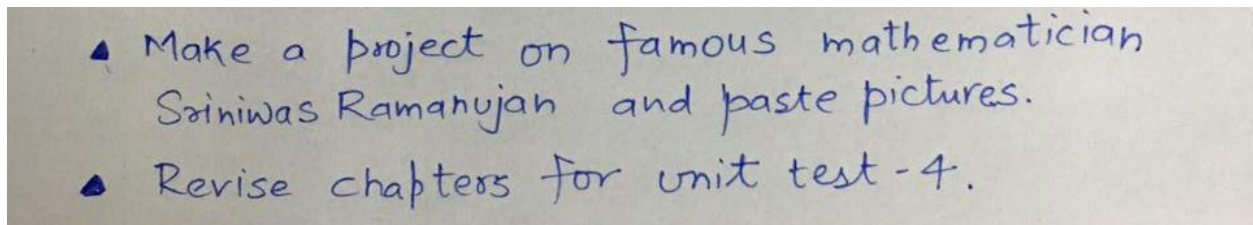 Make a project on famous mathematician
Sriniwas Ramanujan and paste pictures.
Revise chapters for unit test - 4.